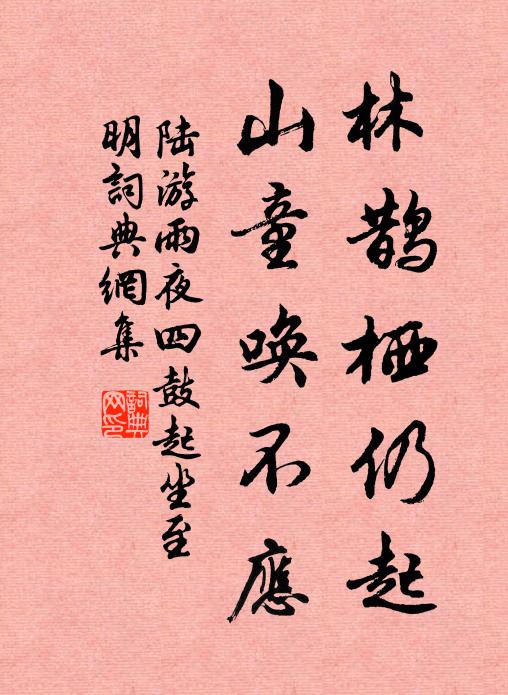 林鵲栖仍起
山童唤不應
陆游雨夜四鼓起坐至
明詞典網集
詞典
网印